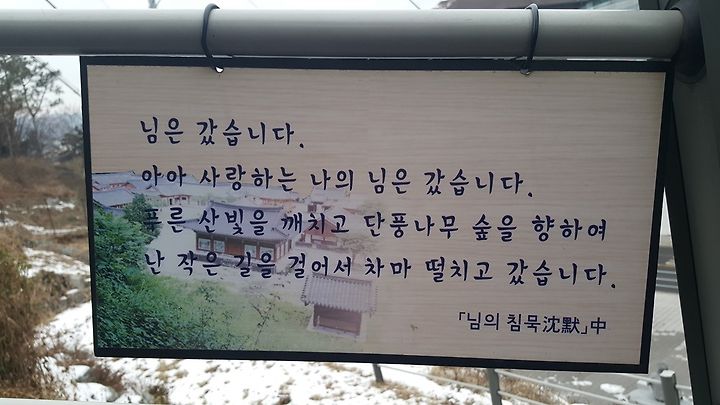 님은 갔습니다.
아아 사랑하는 나의 님은 갔습니다.
푸른 산빛을 깨치고 단풍나무 숲을 향하여
난 작은 길을 걸어서 차마 떨치고 갔습니다.
「님의 침묵沈默」中